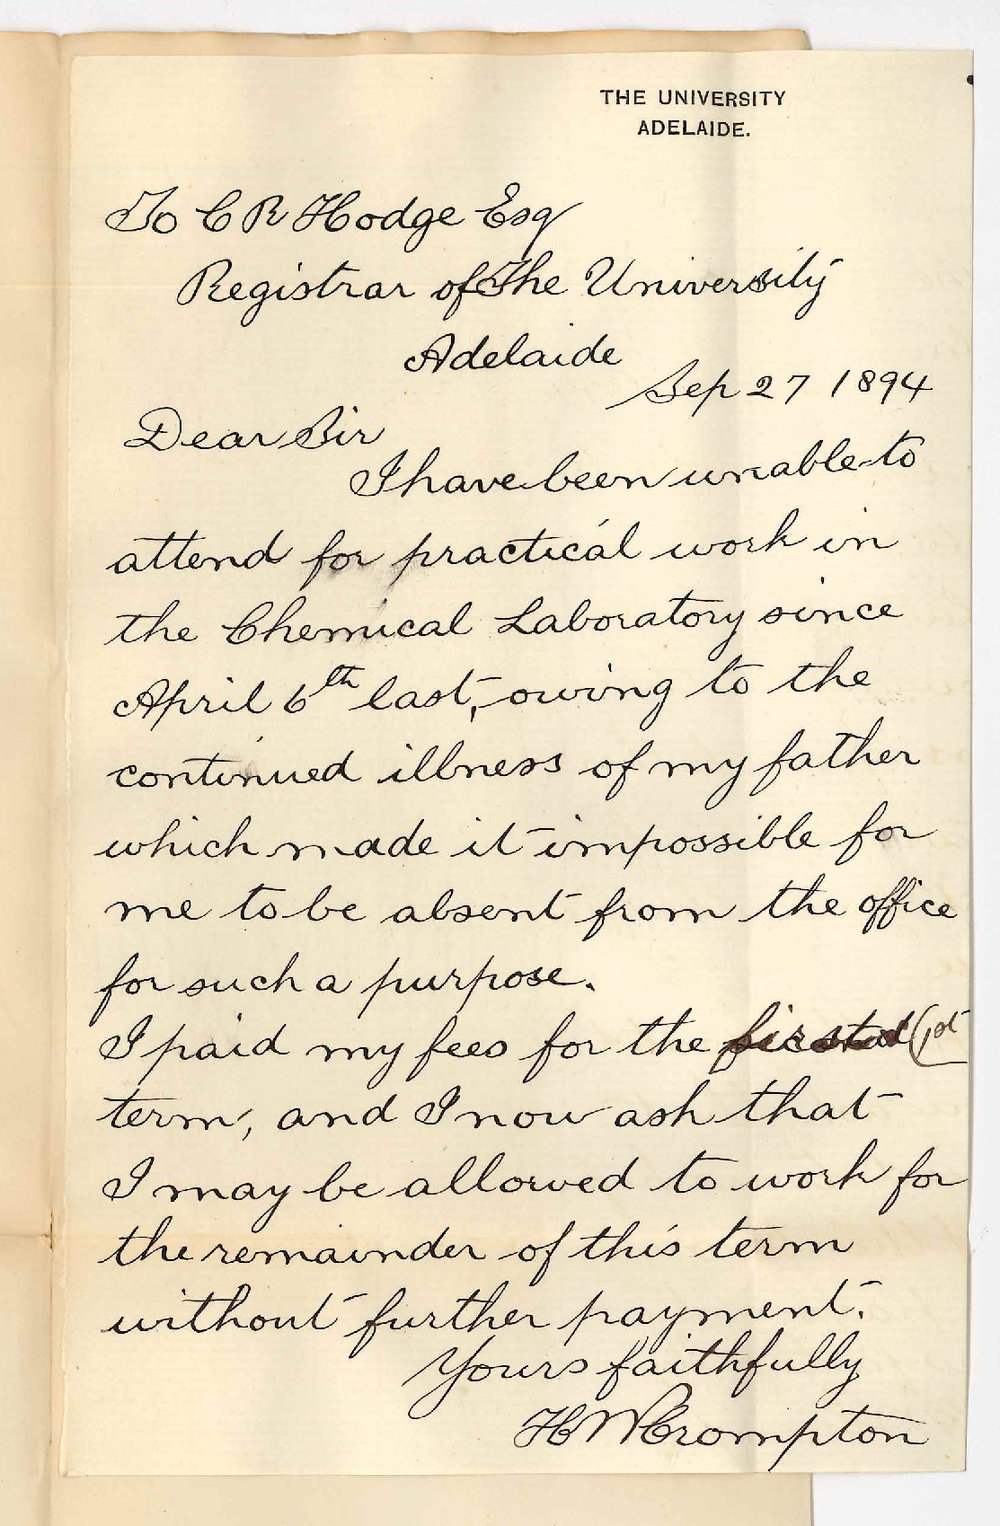 THE UNIVERSITY
ADELAIDE.
To C R Hodge Esq
Registrar of The University
Adelaide
Sep 27 1894
Dear Sir
I have been unable to
attend for practical work in
the Chemical Laboratory since
April 6th last, owing to the
continued illness of my father
which made it impossible for
me to be absent from the office
for such a purpose.
I paid my fees for the (1st
term, and I now ask that
I may be allowed to work for
the remainder of this term
without further payment.
Yours faithfully
H W Crompton